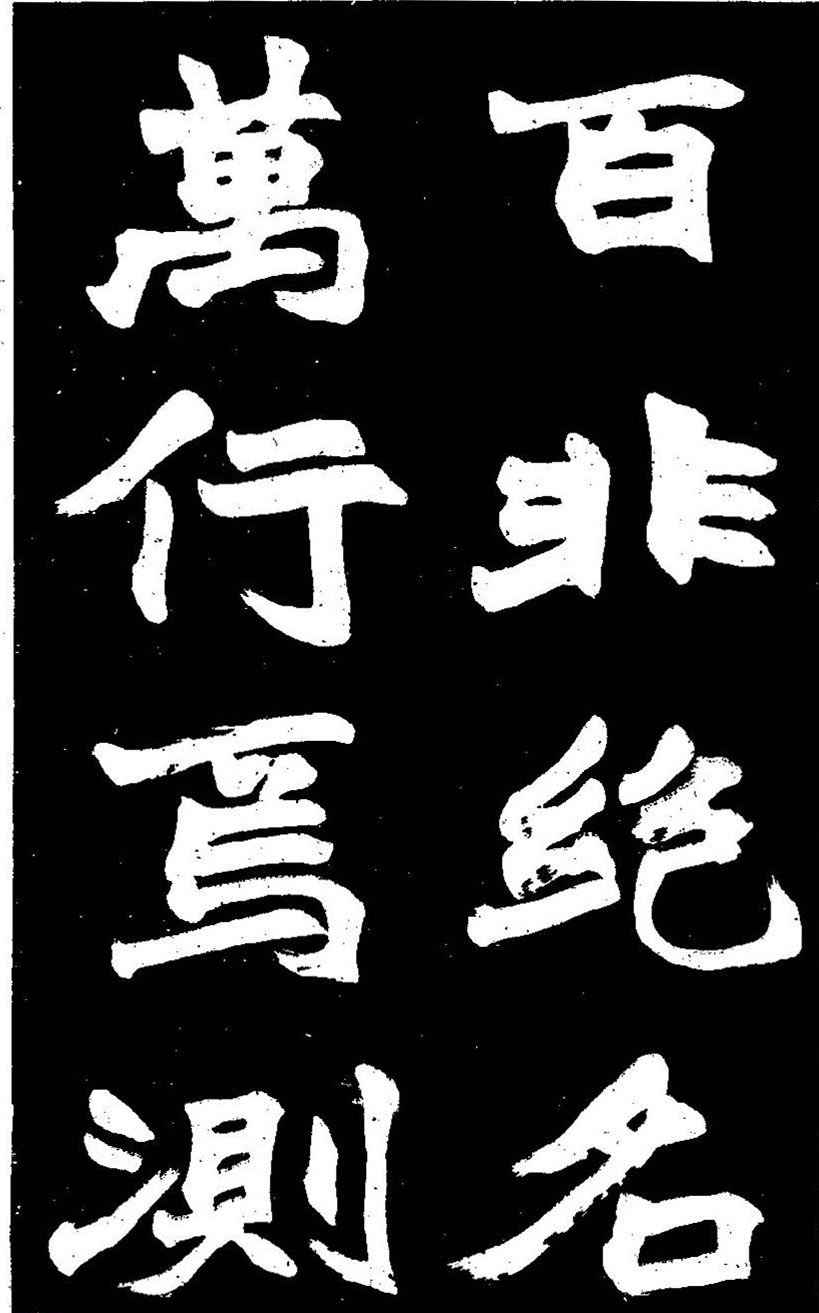 百非絶名
萬行焉測